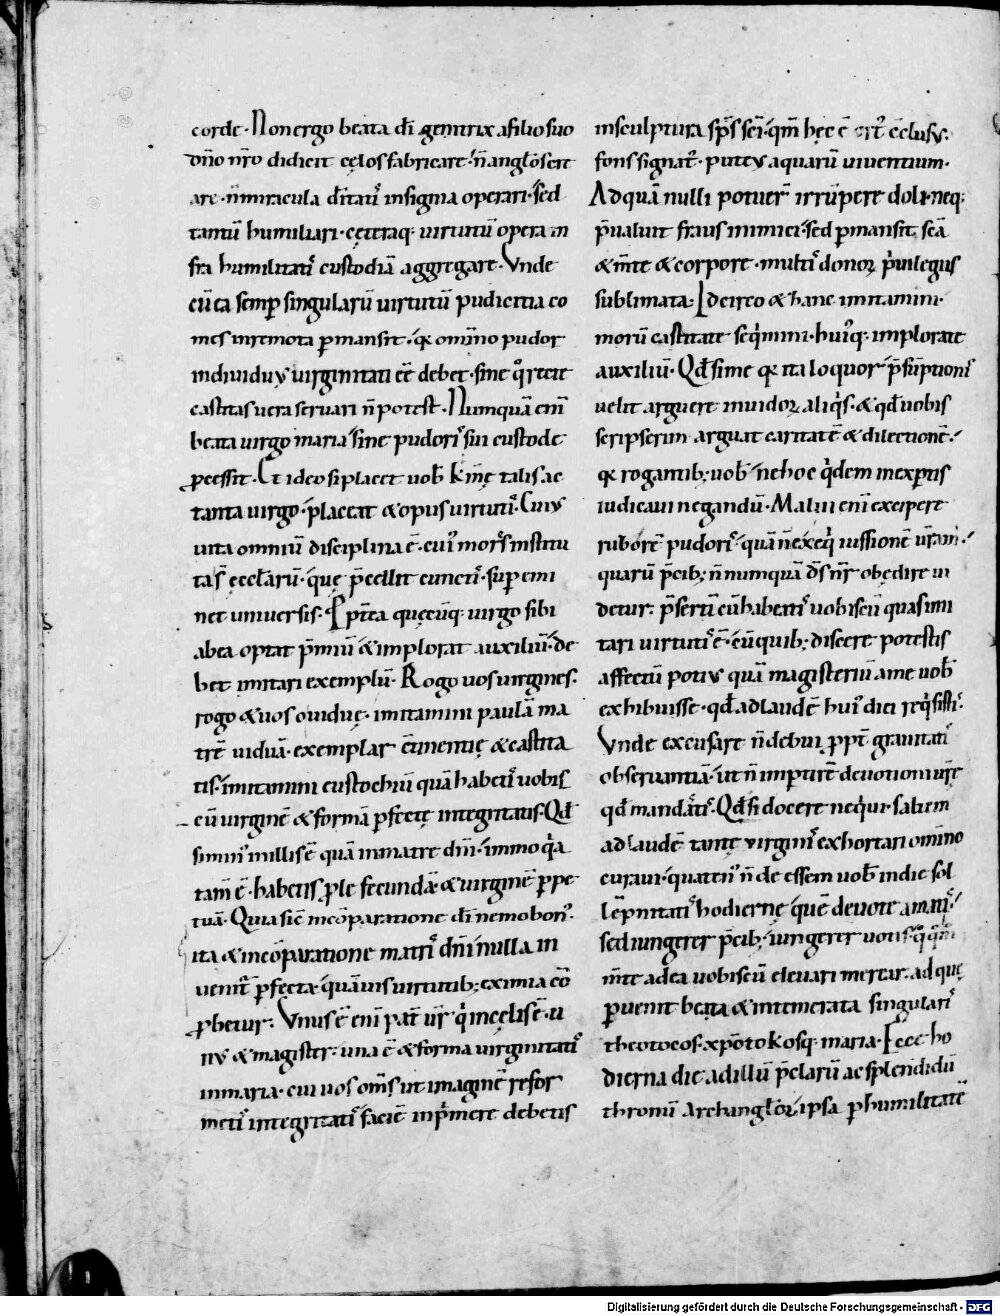 corde· Non ergo beata dī genitrix a filio suo
dn̄o nr̄o didicit cęlos fabricare· n̄ angl̄os cre
are· n̄ miracula dītatis insignia operari· sed
tantū humiliari· ceteraq· virtutū opera in
fra humilitatis custodiā aggregare· Vnde
cū ea semp singularū virtutū pudicitia co
mes inremota pmansit· & om̄ino pudor
individuus virginitati eē debet· sine quo rite
castitas vera servari n̄ potest· Numquā enī
beata virgo maria sine pudoris sui custode
pcessit· Et ideo si placet vob̄ kme talis ac
tanta virgo· placeat & opus virtutis· Cuius
vita omniū disciplina ē· cuius mors institu
ta s̄ ęccl̄arū· que p̄cellit cunctis· sup emi
net universis· Ipt̄ea quęcūq· virgo sibi
ab ea optat p̄miū & implorat auxiliū· de
bet imitari exemplū· Rogo vos virgines·
rogo & vos o viduę· imitamini paulā ma
trē viduā· exemplar cōtinentię & castita
tis· imitamini eustochiū quā habetis vobis
cū virginē & formā pfectę integritatis· Qd̄
simius illis ē quā in matre dn̄i· immo q̄a
tam̄ ē· habetis ple fecundā & virginē ppe
tuā· Quia sic in cōparatione dī nemo bonus·
ita & in cōparatione matris dn̄i nulla in
venit pfecta· quāvis virtutib; eximia cō
pbetur· Vnus ē enī pat̄ vr̄ qui in cęlis ē· u
nus & magister· una ē & forma virginitatis
in maria· cui vos om̄s ut imaginē refor
metis integritatis faciē inp̄mere debetis
insculptura sps̄ sc̄i· qm̄ hęc ē ort̄ cclusus·
fons signat· puteus aquarū viventium·
Ad quā nulli potuer̄ irrūpere doli· neq;
p̄valuit fraus inimici· sed pmansit sc̄a
& m̄te & corpore· multis donor p̄vilegiis
sublimata· Idcirco & hanc imitamini·
morū castitate seq̄mini· huiusq· implorate
auxiliū· Qd̄ si me & ita loquor p̄sūptionis
velit arguere invidor aliq̄s· & qd̄ vobis
scripserim arguat caritatē & dilectionē·
& rogantib; vob̄· ne hoc q̄dem inexptis
iudicavi negandū· Malui enī excipere
ruborē pudoris· quā n̄ exeq̄ iussionē vr̄am·
quarū p̄cib; n̄ numquā ds̄ nr̄ obedire vi
detur· p̄sertī cū habentis vobiscū quas imi
tari virtutis ē· cū quib; discere potestis
affectū potius quā magisteriū a me vob̄
exhibuisse· qd̄ ad laudē huius dici req̄sistis·
Vnde excusare n̄ debui ppt̄ gravitatis
observantiā· ut n̄ imptirē devotioni vr̄e
qd̄ mandātis· Qd̄ si docere neq̄vi· saltem
ad laudē tantę virginis exhortari om̄ino
curavi· quatenus n̄ de essem vob̄ in die sol
lēpnitatis hodiernę quē devote amatis·
sed iungerer p̄cib; iungerer votis·
m̄te ad ea vobiscū elevari merear· ad quę
pvenit beata & intemerata singularis
theotocos· xpotokosq· maria· Ecce ho
dierna die ad illū p̄clarū ac splendidū
thronū Archanglor̄ ipsa p humilitatē